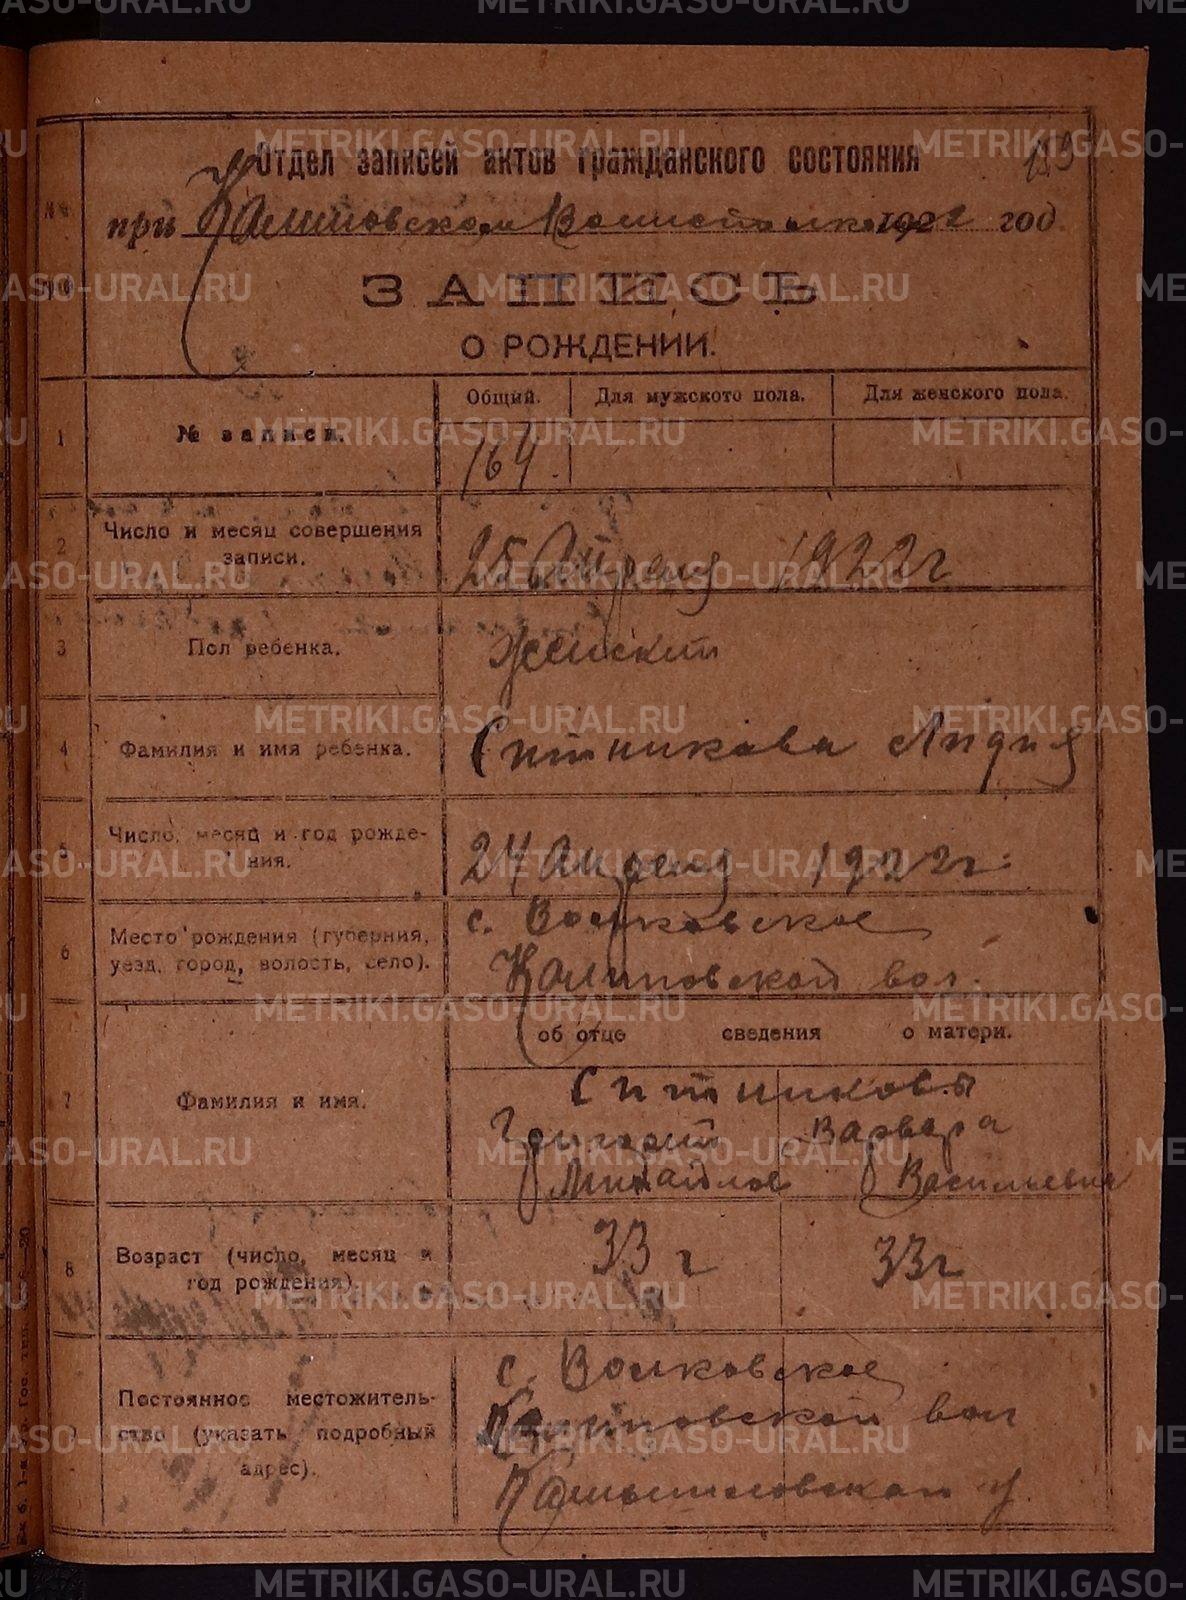 METRIKI.GASO-URAL.RU
Отдел записей актов гражданского состояния
159
при Калиновском Волисполкоме 1922 год.
ЗАПИСЬ
О РОЖДЕНИИ.
Общий. Для мужского пола. Для женского пола.
1 № записи. 164.
2 Число и месяц совершения записи. 25 Апреля 1922 г
3 Пол ребенка. Женский
4 Фамилия и имя ребенка. Ситникова Лидия
5 Число, месяц и год рожде-
ния. 24 Апреля 1922 г.
6 Место рождения (губерния,
уезд, город, волость, село). с. Волковское
Калиновской вол.
об отце сведения о матери.
7 Фамилия и имя. Ситниковы
Григорий Варвара
Михайлов Васильевна
8 Возраст (число, месяц и
год рождения). 33 г 33 г
9 Постоянное местожитель-
ство (указать подробный
адрес). с. Волковское
Калиновской вол
Камышловского у.